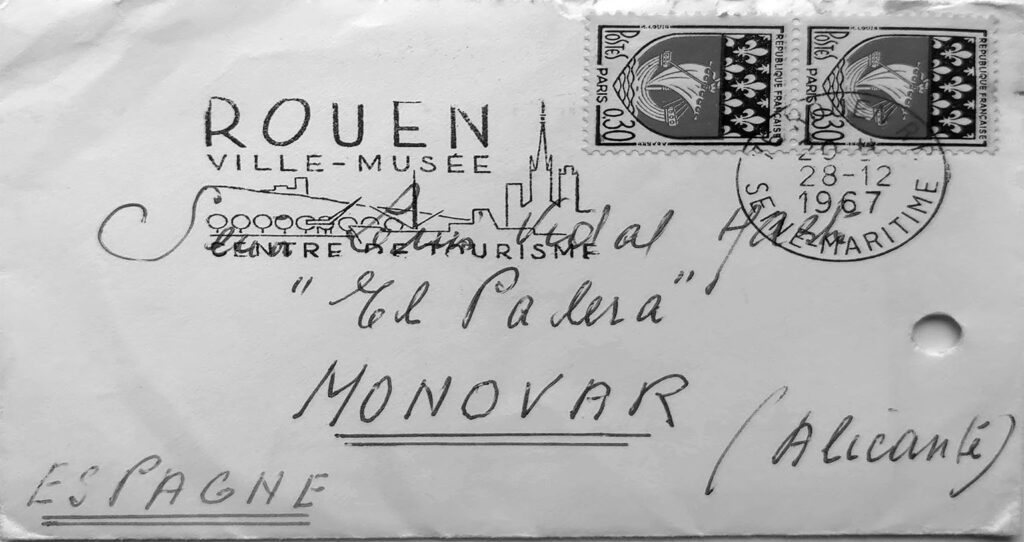 POSTES
PARIS 0,30
RÉPUBLIQUE FRANÇAISE
POSTES
PARIS 0,30
RÉPUBLIQUE FRANÇAISE
ROUEN
VILLE-MUSÉE
CENTRE DE TOURISME
28-12
1967
SEINE MARITIME
Vidal
"El
MONOVAR
(Alicante)
ESPAGNE